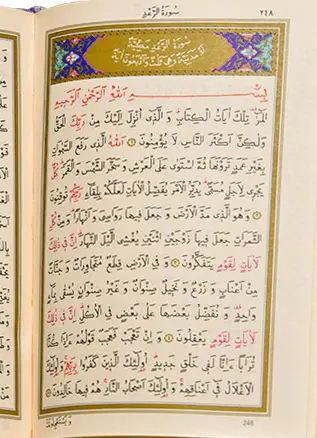 سُورَةُ الرَّعْدِ ٢٤٨
سُورَةُ الرَّعْدِ مَكِّيَّةٌ
بِسْمِ اللّٰهِ الرَّحْمٰنِ الرَّحِيمِ
الٓمٓرٰ تِلْكَ اٰيَاتُ الْكِتَابِ وَالَّذٖٓي اُنْزِلَ اِلَيْكَ مِنْ رَبِّكَ الْحَقُّ
وَلٰكِنَّ اَكْثَرَ النَّاسِ لَا يُؤْمِنُونَ ١ اَللّٰهُ الَّذٖي رَفَعَ السَّمٰوَاتِ
بِغَيْرِ عَمَدٍ تَرَوْنَهَا ثُمَّ اسْتَوٰى عَلَى الْعَرْشِ وَسَخَّرَ الشَّمْسَ وَالْقَمَرَ كُلٌّ
يَجْرٖي لِاَجَلٍ مُسَمًّى يُدَبِّرُ الْاَمْرَ يُفَصِّلُ الْاٰيَاتِ لَعَلَّكُمْ بِلِقَٓاءِ رَبِّكُمْ تُوقِنُونَ
٢ وَهُوَ الَّذٖي مَدَّ الْاَرْضَ وَجَعَلَ فٖيهَا رَوَاسِيَ وَاَنْهَارًا وَمِنْ كُلِّ
الثَّمَرَاتِ جَعَلَ فٖيهَا زَوْجَيْنِ اثْنَيْنِ يُغْشِي الَّيْلَ النَّهَارَ اِنَّ فٖي ذٰلِكَ
لَاٰيَاتٍ لِقَوْمٍ يَتَفَكَّرُونَ ٣ وَفِي الْاَرْضِ قِطَعٌ مُتَجَاوِرَاتٌ وَجَنَّاتٌ
مِنْ اَعْنَابٍ وَزَرْعٌ وَنَخٖيلٌ صِنْوَانٌ وَغَيْرُ صِنْوَانٍ يُسْقٰى بِمَٓاءٍ
وَاحِدٍ وَنُفَضِّلُ بَعْضَهَا عَلٰى بَعْضٍ فِي الْاُكُلِ اِنَّ فٖي ذٰلِكَ
لَاٰيَاتٍ لِقَوْمٍ يَعْقِلُونَ ٤ وَاِنْ تَعْجَبْ فَعَجَبٌ قَوْلُهُمْ ءَاِذَا كُنَّا
تُرَابًا ءَاِنَّا لَفٖي خَلْقٍ جَدٖيدٍ اُولٰٓئِكَ الَّذٖينَ كَفَرُوا بِرَبِّهِمْ وَاُولٰٓئِكَ
الْاَغْلَالُ فٖٓي اَعْنَاقِهِمْ وَاُولٰٓئِكَ اَصْحَابُ النَّارِ هُمْ فٖيهَا خَالِدُونَ ٥
وَيَسْتَعْجِلُونَكَ 248